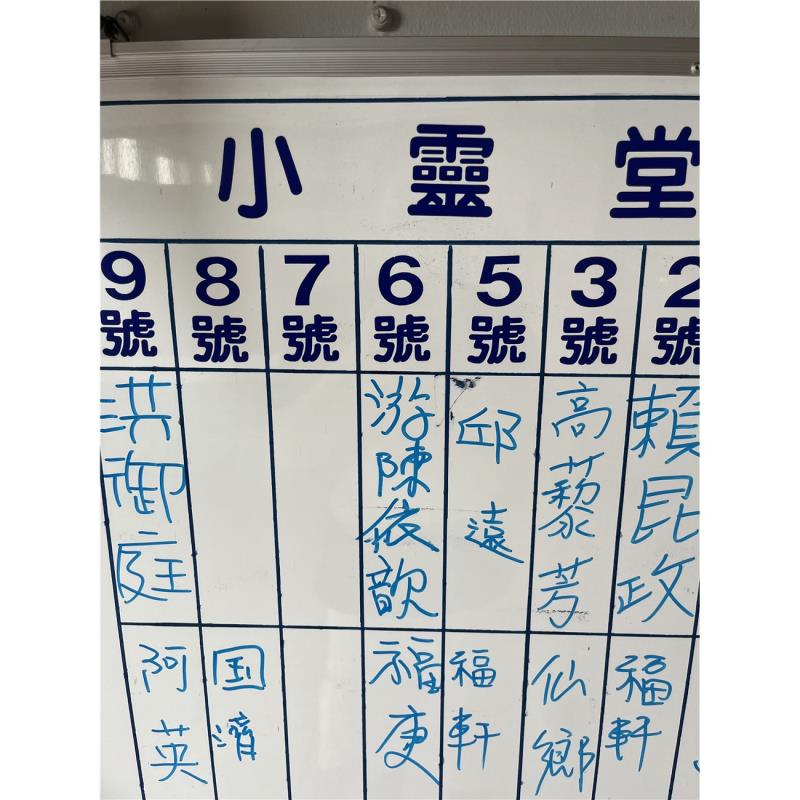 小靈堂
9號 8號 7號 6號 5號 3號 2號
洪御庭 游陳依歆 邱遠 高藜芳 賴昆政
阿英 国濟 福庚 福軒 仙鄉 福軒